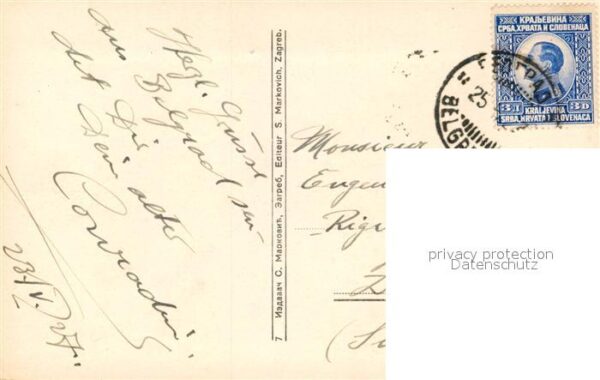 Herzl. Grüsse
aus Belgrad sen
det Dir
Dein alter
Conradin
23/V. 27.
7 Издавач С. Марковић, Загреб, Editeur S. Markovich, Zagreb.
КРАЉЕВИНА
СРБА, ХРВАТА И СЛОВЕНАЦА
3 Д 3 D
KRALJEVINA
SRBA, HRVATA I SLOVENACA
25
Monsieur
Eugen
Rigi
(Su
privacy protection
Datenschutz